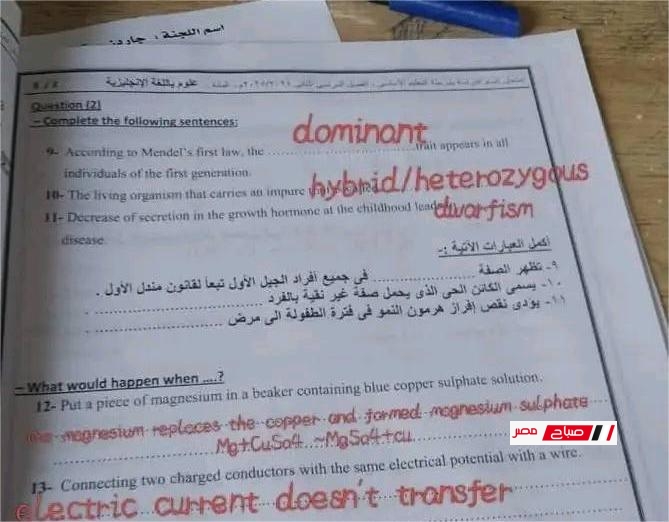 اسم اللجنة :
علوم باللغة الإنجليزية
Question (2)
– Complete the following sentences:
dominant
9- According to Mendel's first law, the ........................ trait appears in all
individuals of the first generation.
hybrid/heterozygous
10- The living organism that carries an impure
11- Decrease of secretion in the growth hormone at the childhood leads
dwarfism
disease.
أكمل العبارات الآتية :-
٩- تظهر الصفة .................... فى جميع أفراد الجيل الأول تبعاً لقانون مندل الأول .
١٠- يسمى الكائن الحى الذى يحمل صفة غير نقية بالفرد .................... .
١١- يؤدى نقص إفراز هرمون النمو فى فترة الطفولة الى مرض .................... .
– What would happen when ....?
12- Put a piece of magnesium in a beaker containing blue copper sulphate solution.
magnesium replaces the copper and formed magnesium sulphate
Mg+CuSo4 ~MgSo4+cu
صباح مصر
13- Connecting two charged conductors with the same electrical potential with a wire.
electric current doesn't transfer